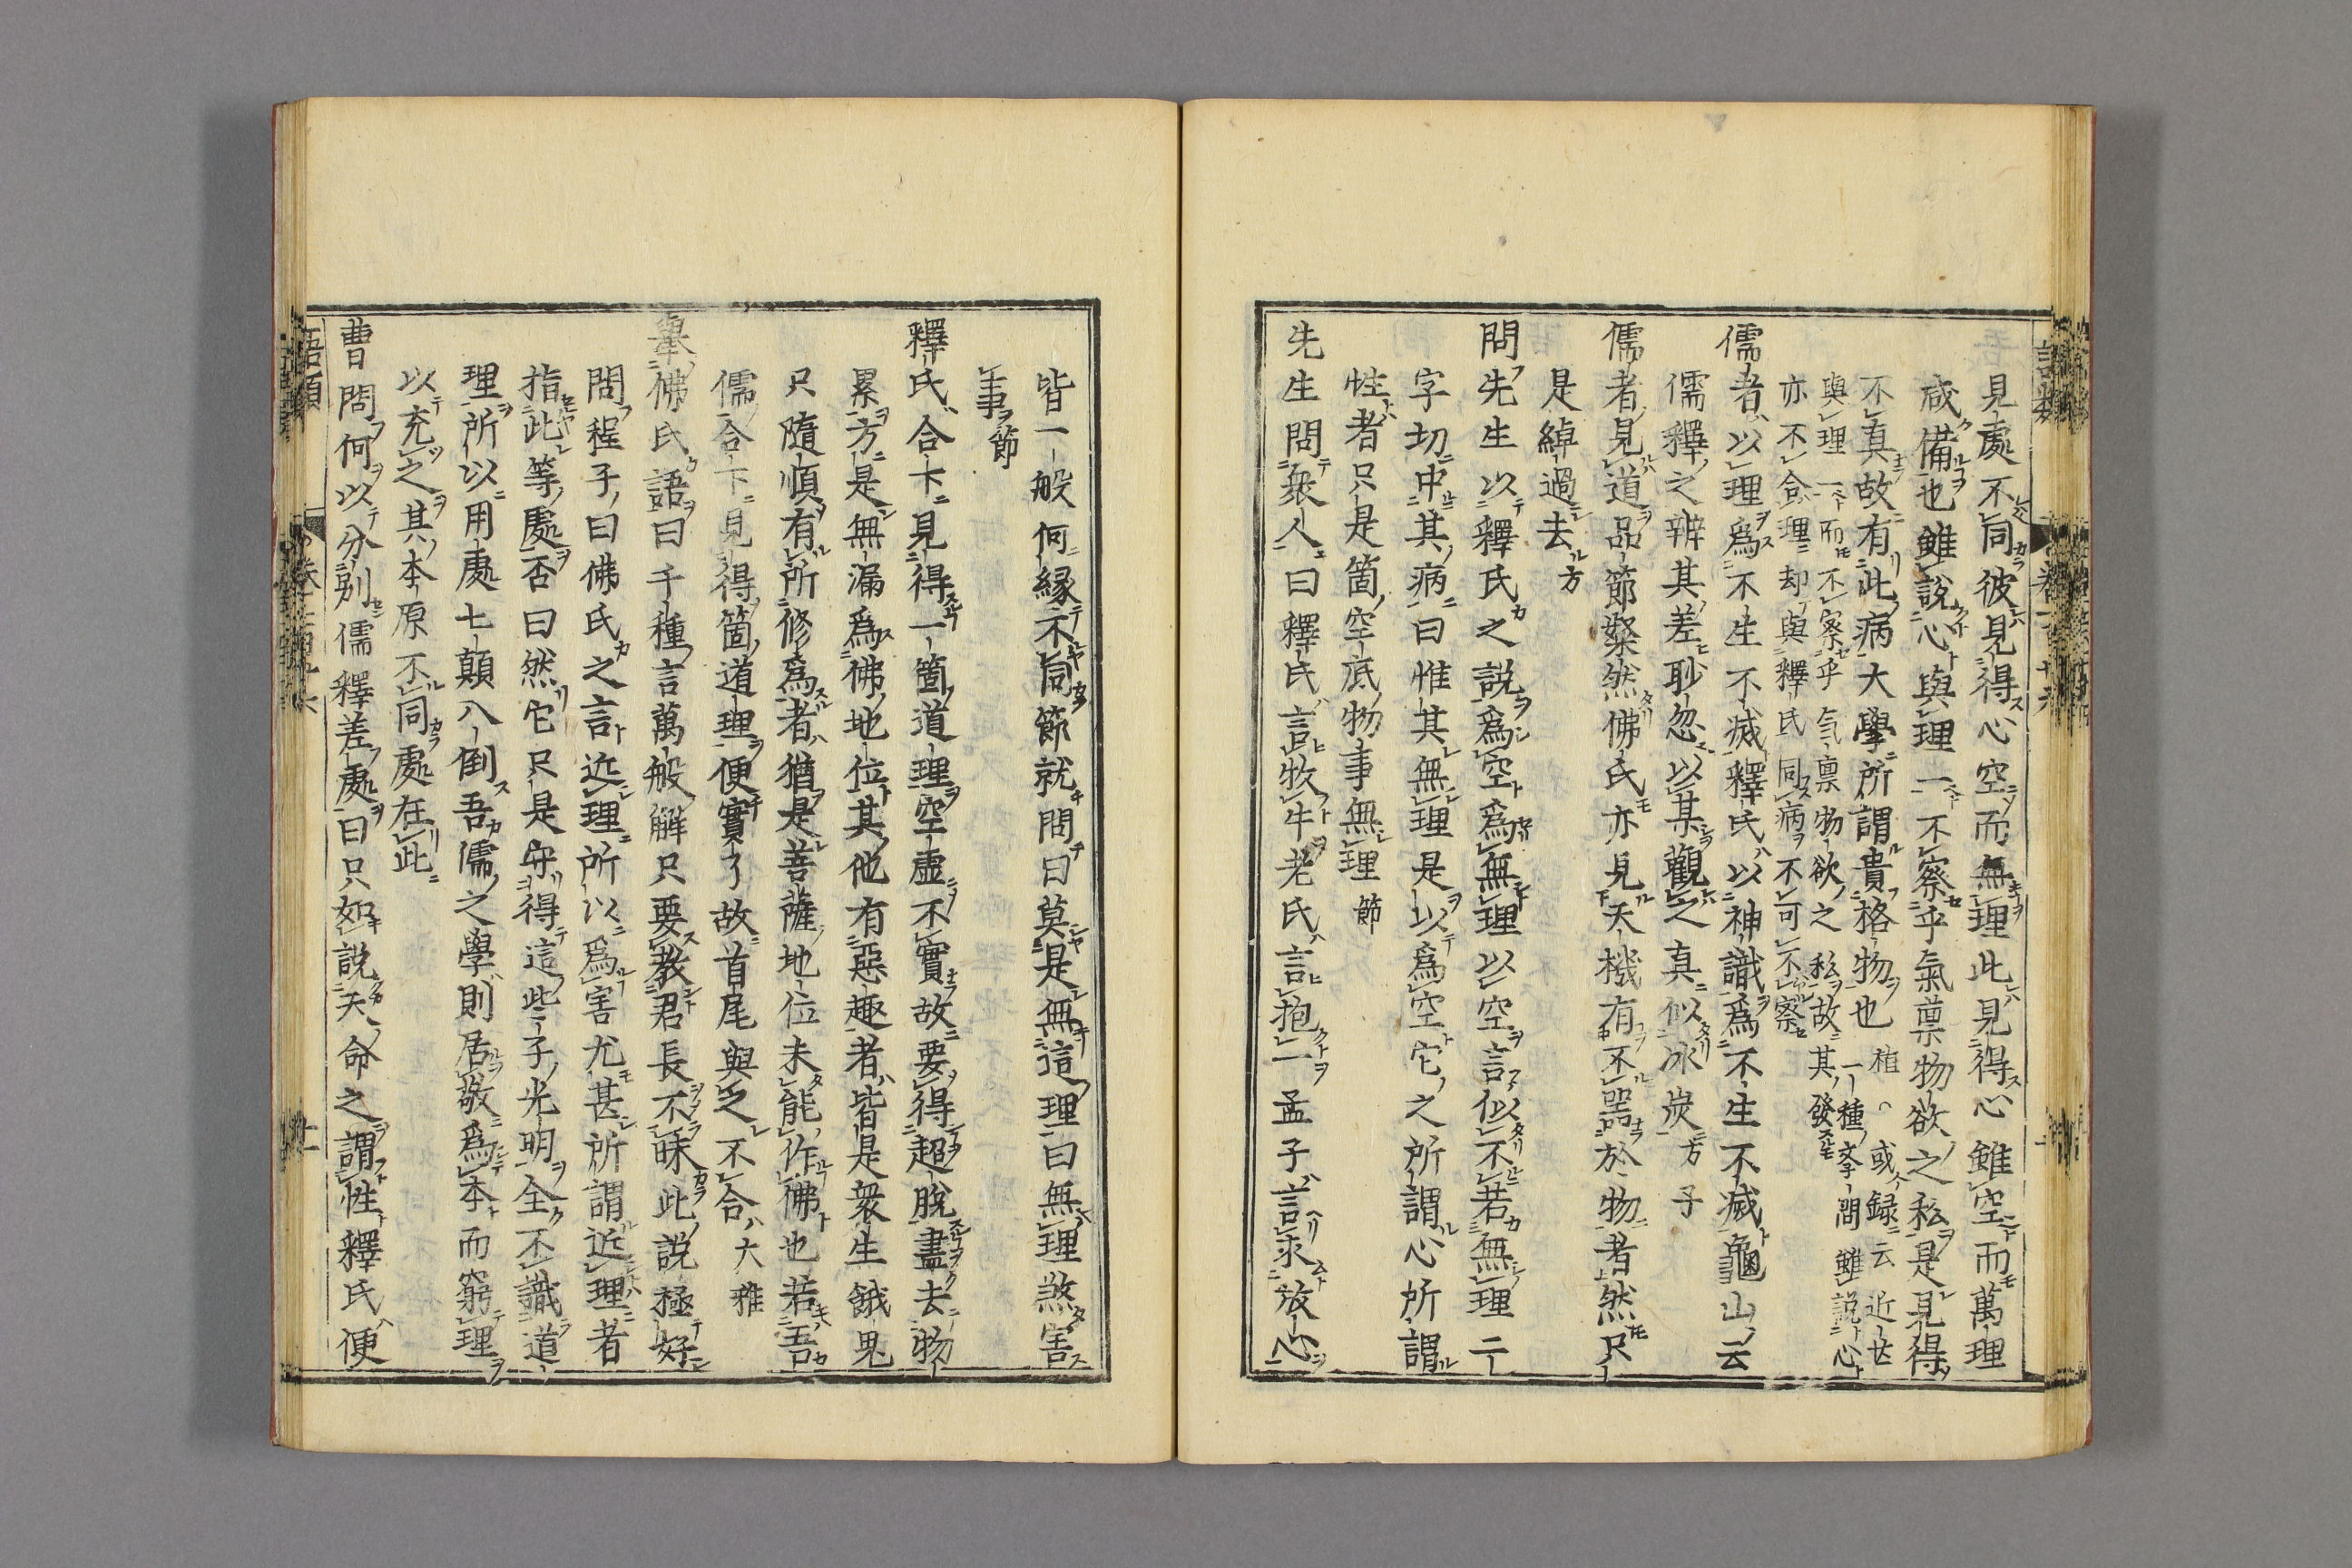 見處不同彼見得心空而無理此見得心雖空而萬理
咸備也雖說心與理一不察乎氣稟物欲之私是見得
不真故有此病大學所謂貴格物也 植 ○ 或録云近世
一種學問雖說心
與理一而不察乎気稟物欲之私故其發
亦不合理却與釋氏同病不可不察
儒者以理爲不生不滅釋氏以神識爲不生不滅龜山云
儒釋之辨其差眇忽以某觀之真似冰炭 方子
儒者見道品節粲然佛氏亦見天機有不器於物者然只
是綽過去 方
問先生以釋氏之說爲空爲無理以空言似不若無理二
字切中其病曰惟其無理是以爲空它之所謂心所謂
性者只是箇空底物事無理 節
先生問衆人曰釋氏言牧牛老氏言抱一孟子言求放心
皆一般何縁不同節就問曰莫是無這理曰無理煞害
事 節
釋氏合下見得一箇道理空虛不實故要得超脫盡去物
累方是無漏爲佛地位其他有惡趣者皆是衆生餓鬼
只隨順有所修爲者猶是菩薩地位未能作佛也若吾
儒合下見得箇道理便實了故首尾與之不合 大雅
擧佛氏語曰千種言萬般解只要教君長不昧此說極好
問程子曰佛氏之言近理所以爲害尤甚所謂近理者
指此等處否曰然它只是守得這些子光明全不識道
理所以用處七顛八倒吾儒之學則居敬爲本而窮理
以充之其本原不同處在此
曹問何以分別儒釋差處曰只如說天命之謂性釋氏便
語類